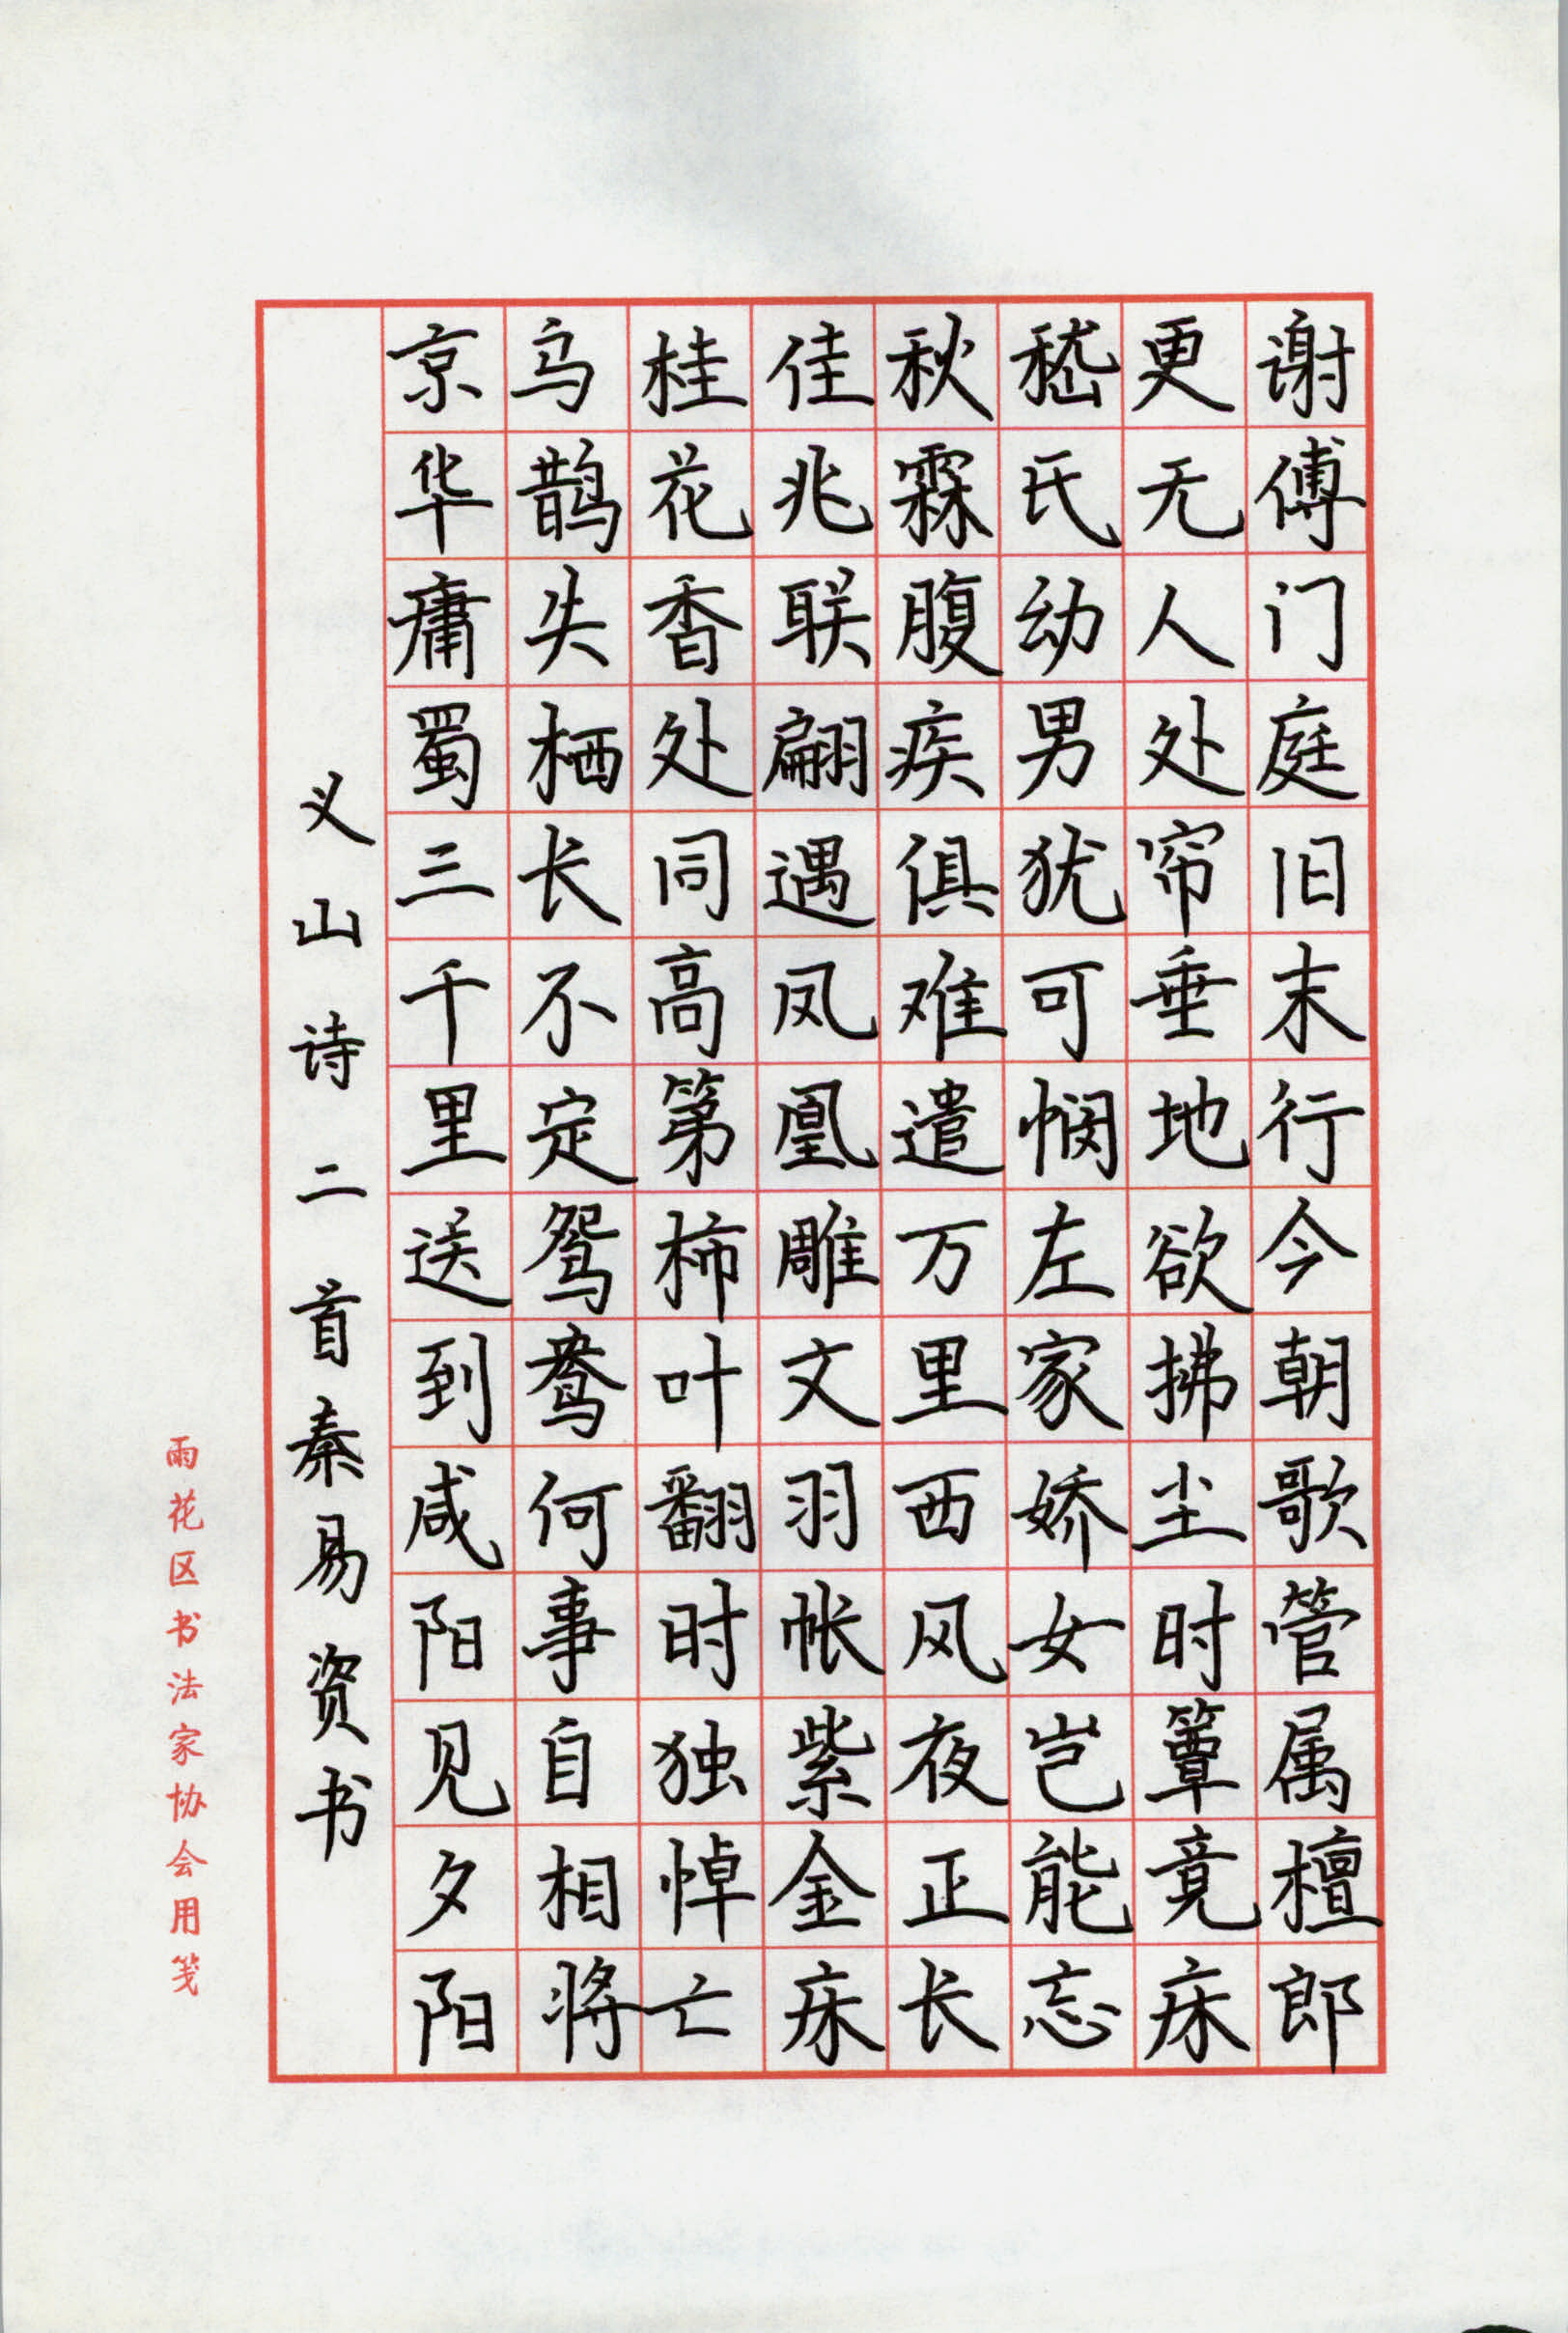 谢傅门庭旧末行今朝歌管属檀郎
更无人处帘垂地欲拂尘时簟竟床
嵇氏幼男犹可悯左家娇女岂能忘
秋霖腹疾俱难遣万里西风夜正长
佳兆联翩遇凤凰雕文羽帐紫金床
桂花香处同高第柿叶翻时独悼亡
乌鹊失栖长不定鸳鸯何事自相将
京华庸蜀三千里送到咸阳见夕阳
义山诗二首秦易资书
雨花区书法家协会用笺